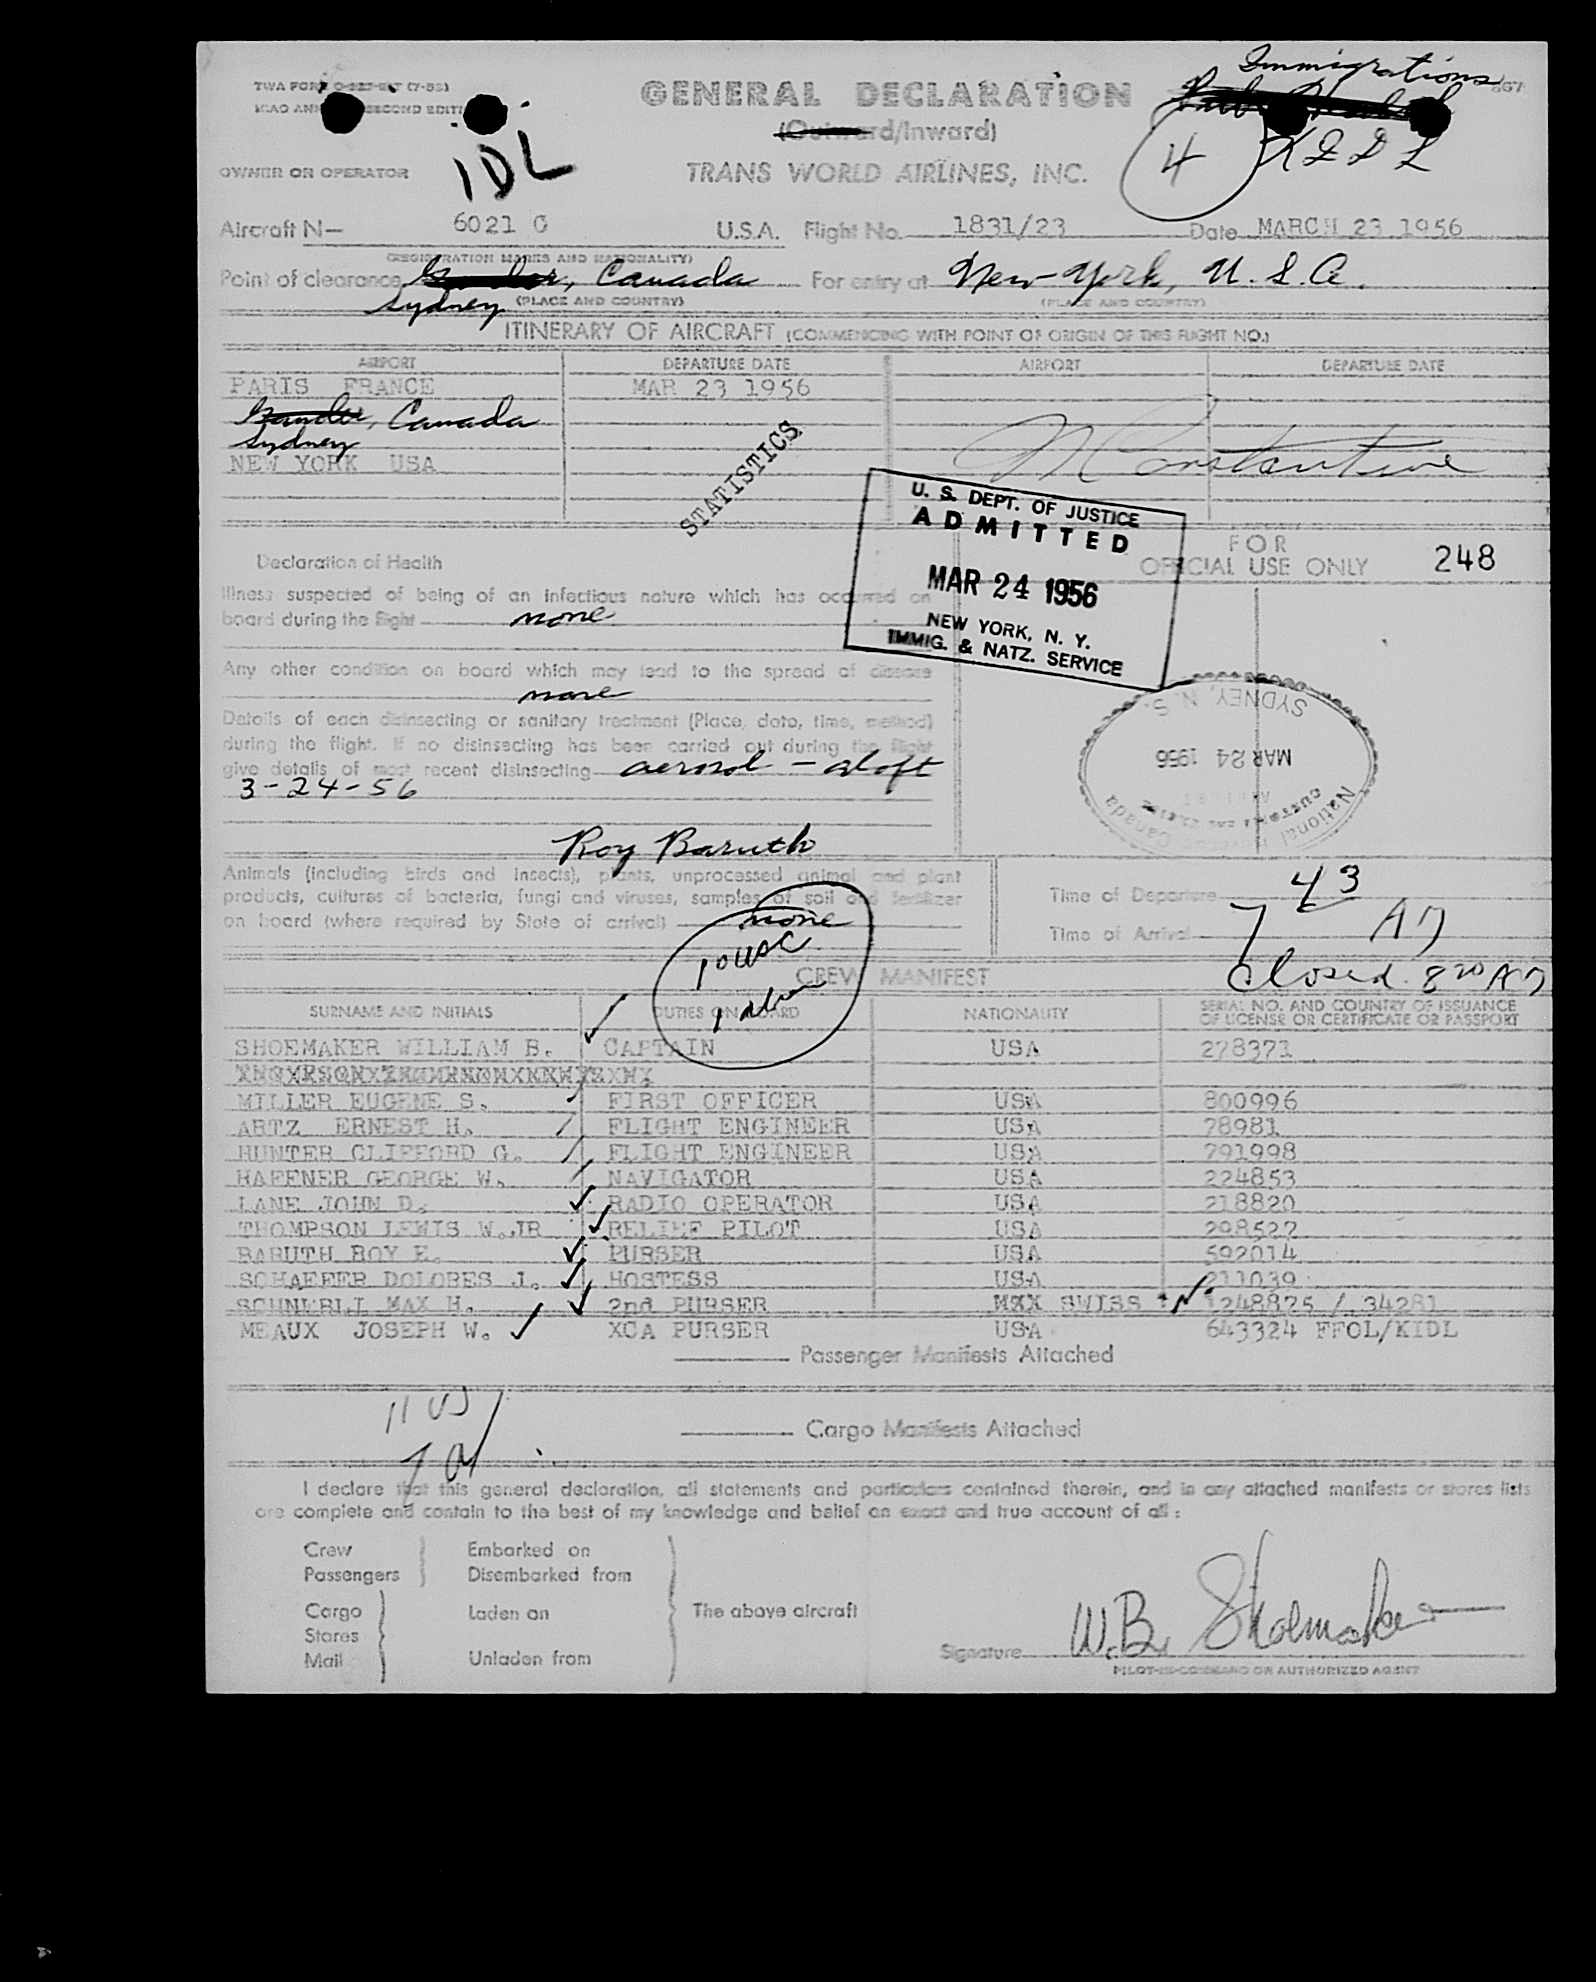 TWA FORM
SECOND EDIT
GENERAL DECLARATION
Immigrations
(Outward/Inward)
4 KIDL
IDL
OWNER OR OPERATOR
TRANS WORLD AIRLINES, INC.
Aircraft N— 6021 C U.S.A. Flight No. 1831/23 Date MARCH 23 1956
(REGISTRATION MARKS AND NATIONALITY)
Point of clearance Gander, Canada For entry at New York, U.S.A.
Sydney (PLACE AND COUNTRY) (PLACE AND COUNTRY)
ITINERARY OF AIRCRAFT (COMMENCING WITH POINT OF ORIGIN OF THIS FLIGHT NO.)
AIRPORT DEPARTURE DATE AIRPORT DEPARTURE DATE
PARIS FRANCE MAR 23 1956
Gander, Canada
Sydney
NEW YORK USA
M Constantine
STATISTICS
U. S. DEPT. OF JUSTICE
ADMITTED
MAR 24 1956
NEW YORK, N. Y.
IMMIG. & NATZ. SERVICE
FOR
OFFICIAL USE ONLY 248
Declaration of Health
Illness suspected of being of an infectious nature which has occurred on
board during the flight none
Any other condition on board which may lead to the spread of disease
none
Details of each disinsecting or sanitary treatment (Place, date, time, method)
during the flight. If no disinsecting has been carried out during the flight
give details of most recent disinsecting aerosol - aloft
3-24-56
SYDNEY, N. S.
MAR 24 1956
National Canada
Roy Baruth
Animals (including birds and insects), plants, unprocessed animal and plant
products, cultures of bacteria, fungi and viruses, samples of soil and fertilizer
on board (where required by State of arrival) none
Time of Departure 43
Time of Arrival 7 AM
10 USC
1
Closed 8 20 AM
CREW MANIFEST
SURNAME AND INITIALS DUTIES ON BOARD NATIONALITY SERIAL NO. AND COUNTRY OF ISSUANCE
OF LICENSE OR CERTIFICATE OR PASSPORT
SHOEMAKER WILLIAM B. CAPTAIN USA 278371
MILLER EUGENE S. FIRST OFFICER USA 800996
ARTZ ERNEST H. FLIGHT ENGINEER USA 78981
HUNTER CLIFFORD G. FLIGHT ENGINEER USA 791998
HAFENER GEORGE W. NAVIGATOR USA 224853
LANE JOHN D. RADIO OPERATOR USA 218820
THOMPSON LEWIS W.JR RELIEF PILOT USA 298527
BARUTH ROY E. PURSER USA 592014
SCHAEFER DOLORES J. HOSTESS USA 211039
SCHNEBLI MAX H. 2nd PURSER SWISS 1248875 / 34281
MEAUX JOSEPH W. XCA PURSER USA 643324 FFOL/KIDL
Passenger Manifests Attached
11 US
1 al
Cargo Manifests Attached
I declare that this general declaration, all statements and particulars contained therein, and in any attached manifests or stores lists
are complete and contain to the best of my knowledge and belief an exact and true account of all:
Crew Embarked on
Passengers Disembarked from
Cargo Laden on The above aircraft
Stores
Mail Unladen from
Signature W.B. Shoemaker
PILOT-IN-COMMAND OR AUTHORIZED AGENT